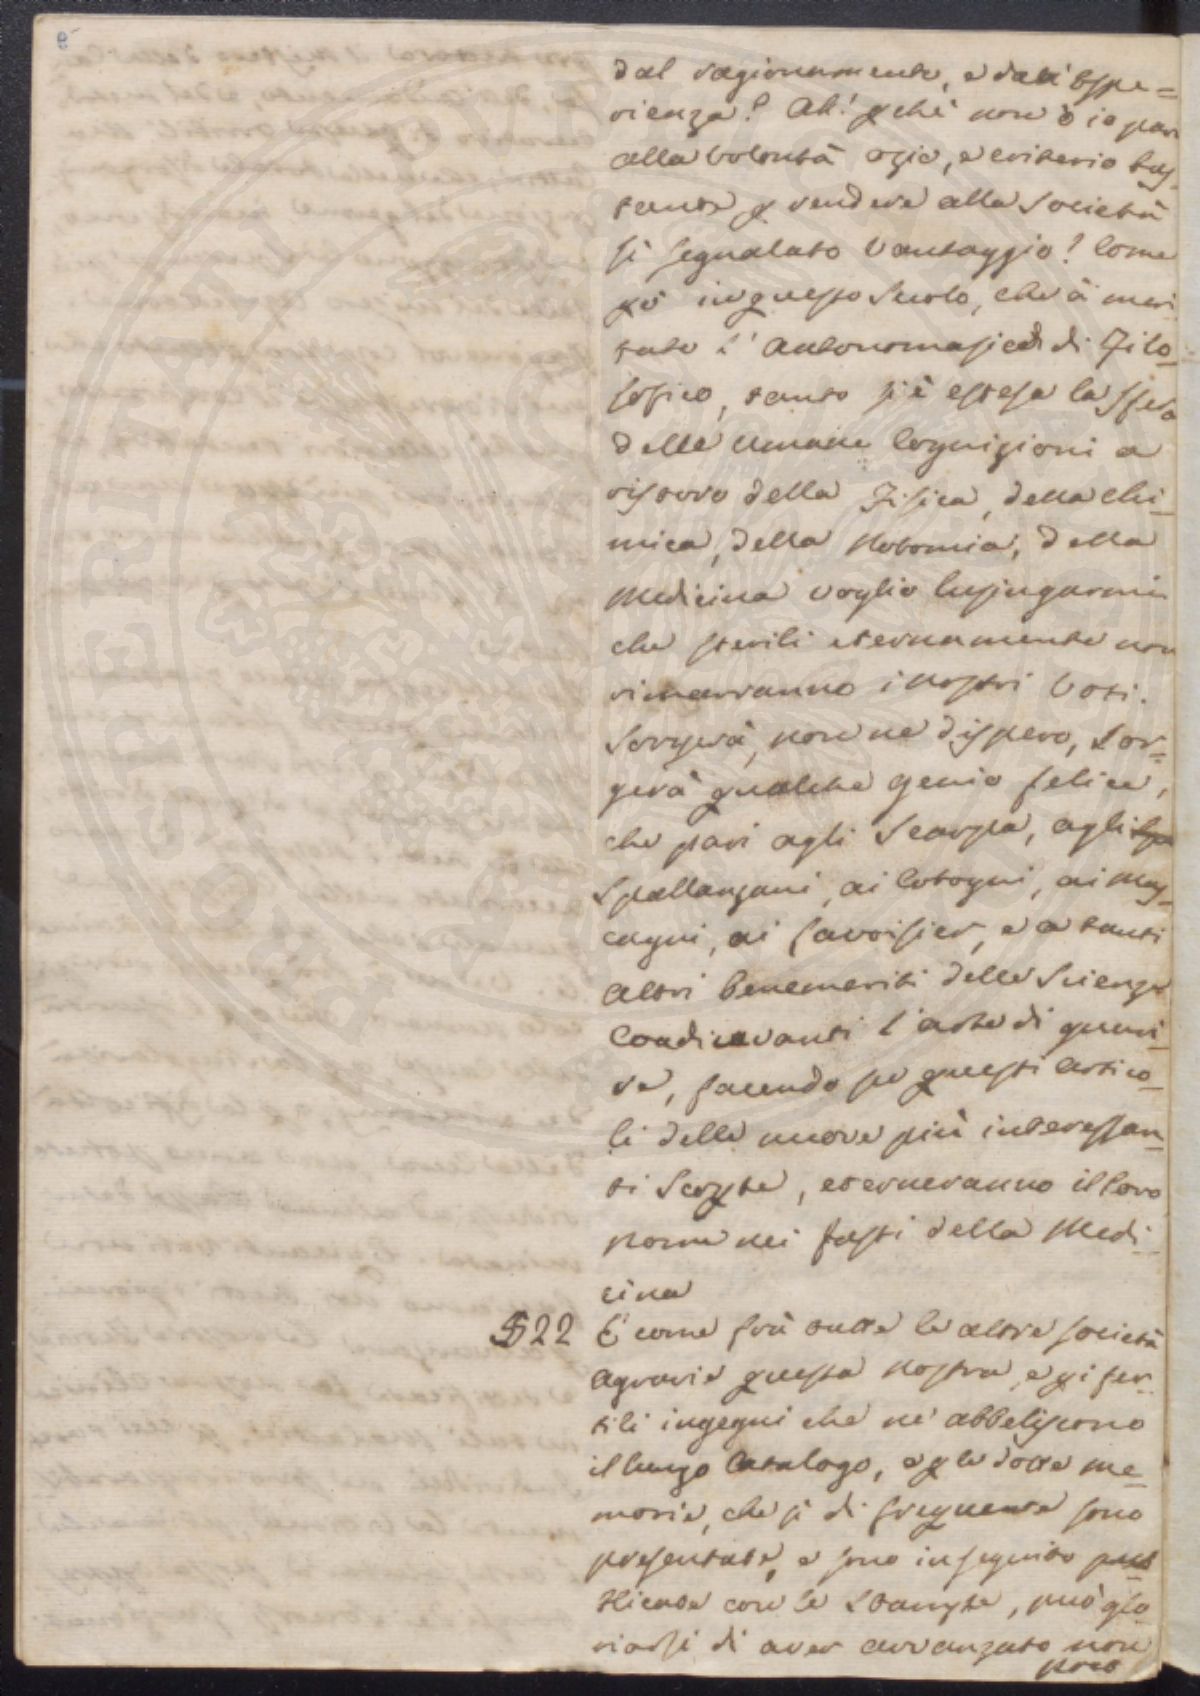 dal ragionamento, e dall' Espe=
rienza? Ah! pchè non ò io pari
alla volontà ozio, e criterio bas-
tante p rendere alla Società
sì segnalato vantaggio! Come
pò in questo Secolo, che à meri-
tato l' Antonomasia di Filo-
sofico, tanto si è estesa la sfera
delle umane Cognizioni a
ristoro della Fisica, della Chi-
mica, della Notomia, della
Medicina voglio lusingarmi
che sterili eternamente non
rimarranno i nostri Voti.
Sorgerà, non ne dispero, Sor=
gerà qualche genio felice,
che pari agli Scarpa, agli
Spallanzani, ai Cotogni, ai Mas-
cagni, ai Lavoisier, e a tanti
altri benemeriti delle Scienze
Coadiuvanti l'arte di guari-
re, facendo su questi artico-
li delle nuove più interessan-
ti Scopte, eterneranno il loro
nome nei fasti della Medi-
cina
§ 22 E' come frà tutte le altre società
Agrarie questa nostra, e pi fer-
tili ingegni che nè abbeliscono
il lungo Catalogo, e p le dotte me-
morie, che sì di frequente sono
presentate, e sono in seguito pub
blicate con le Stampe, può glo-
riarsi di aver avvanzato non
poco
PROSPERITATI PUBLICAE